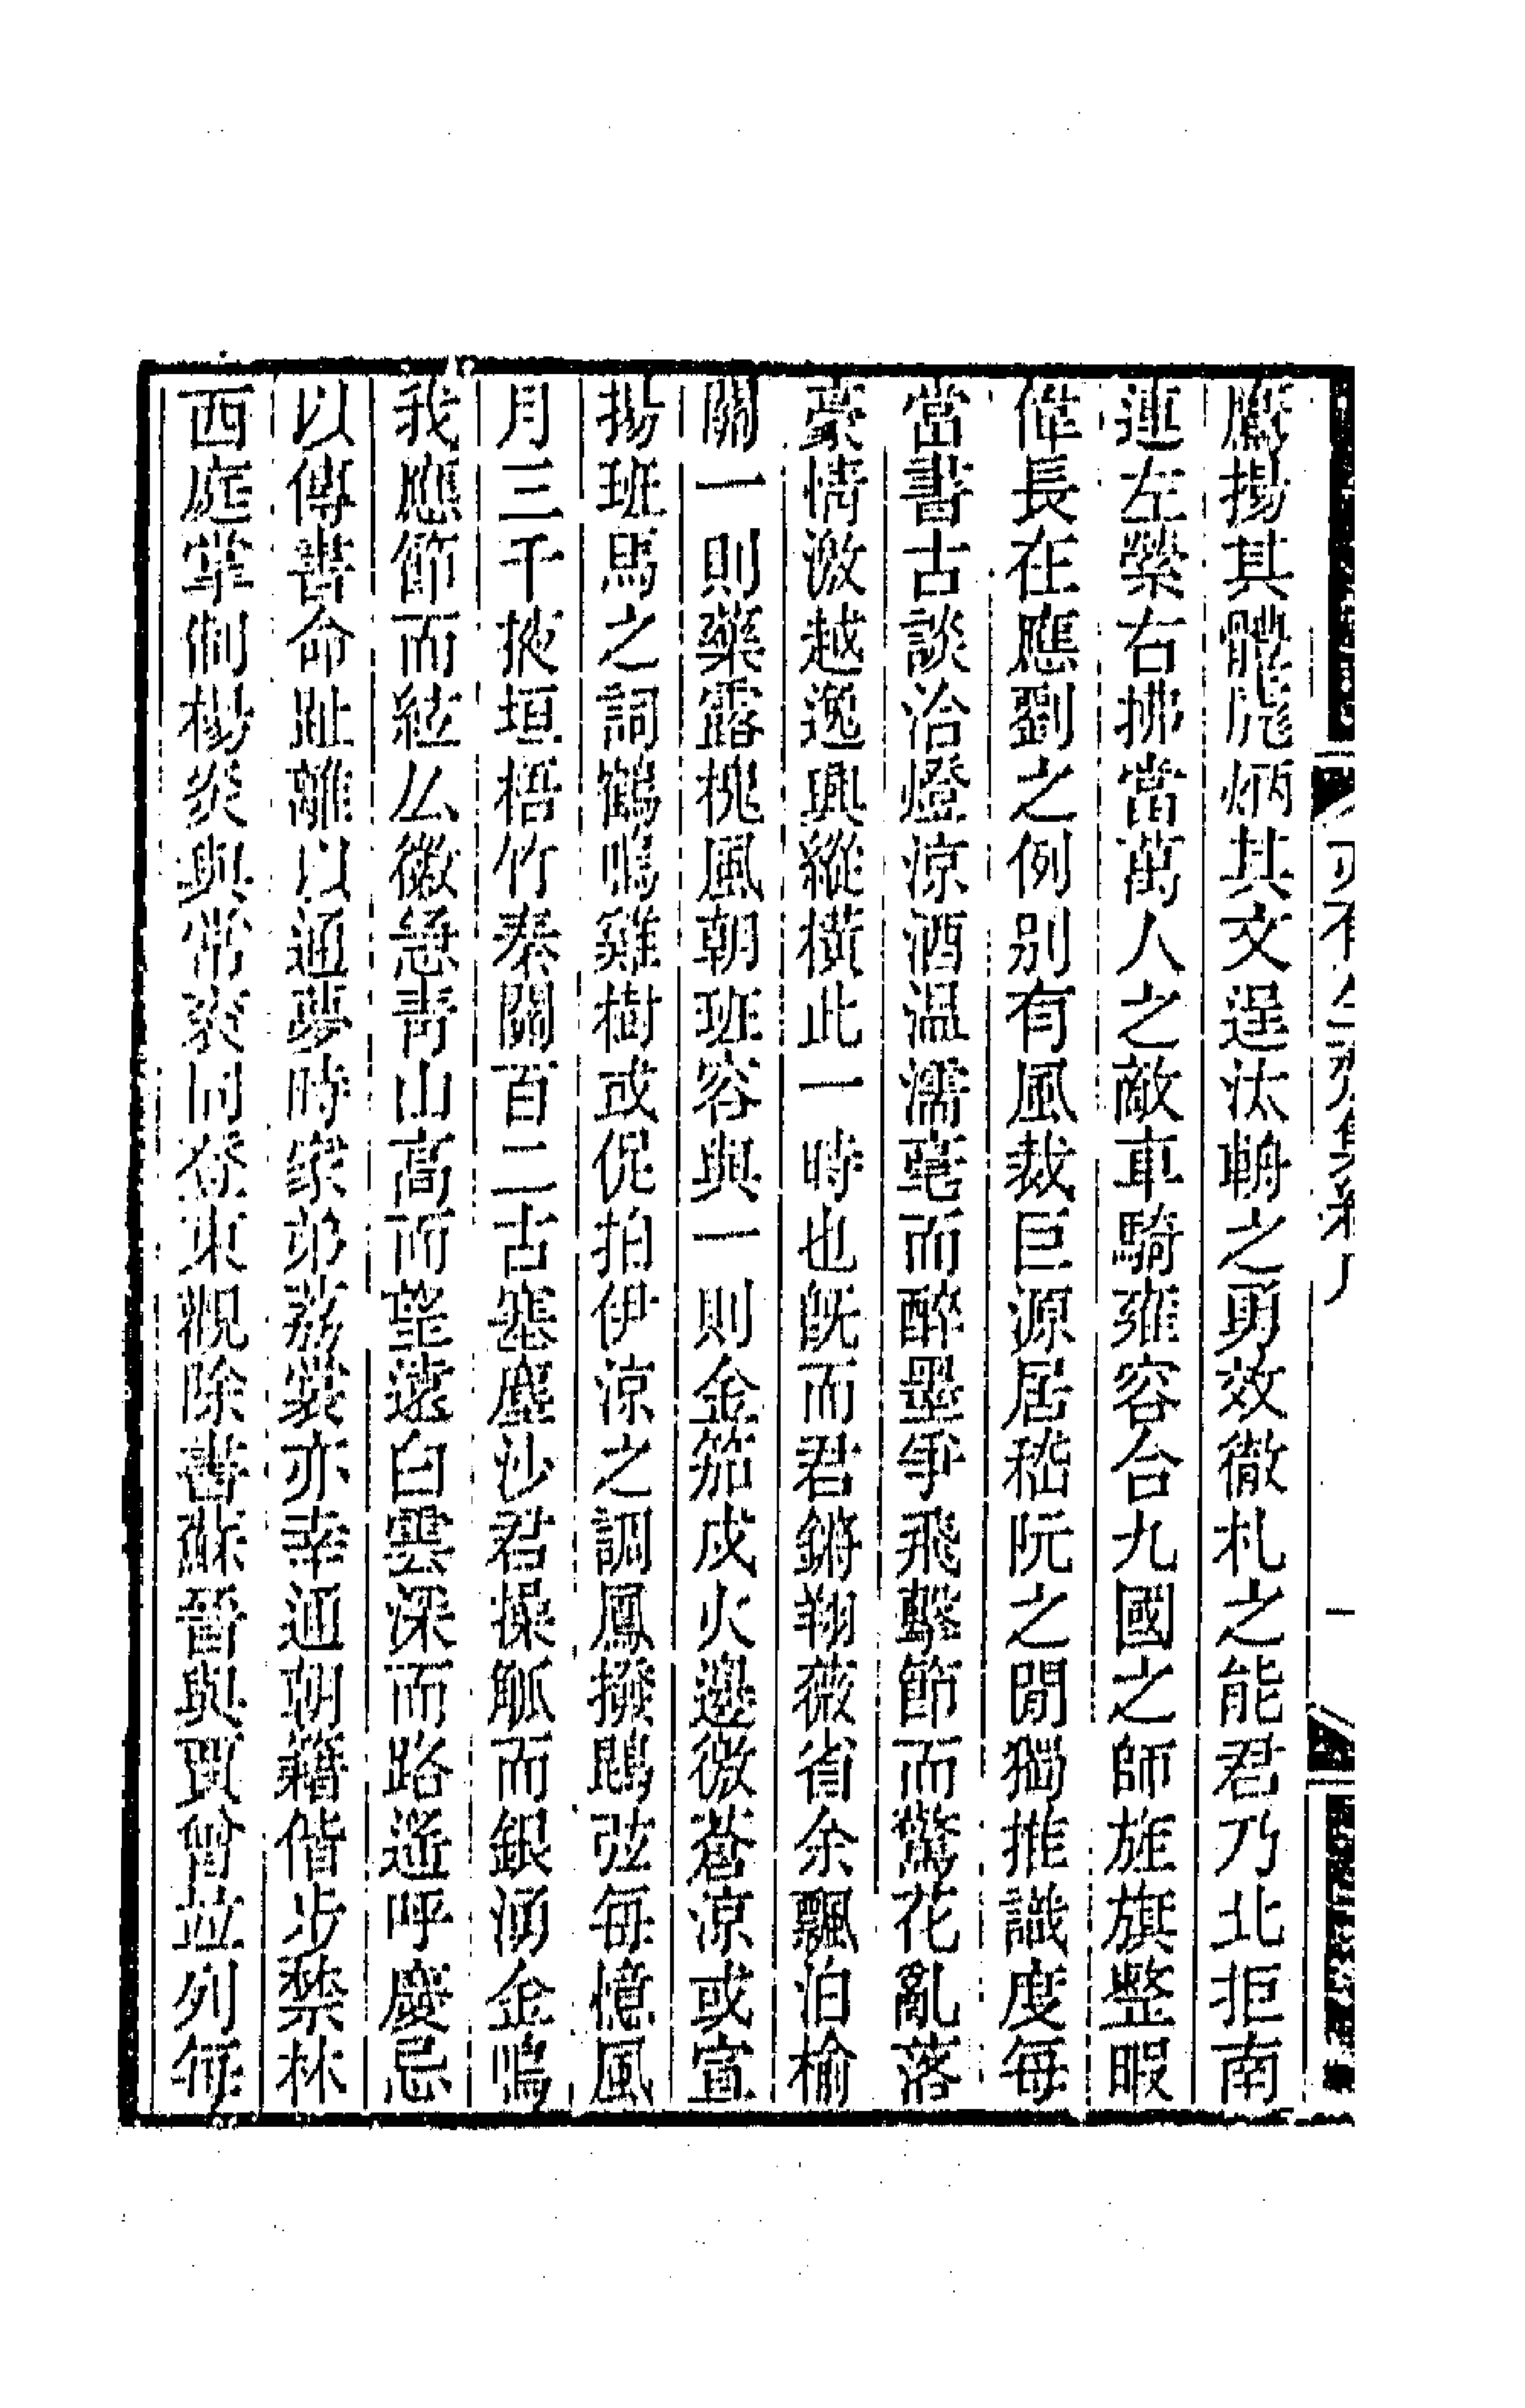 鷹揚其體彪炳其文逞汰輈之勇效徹札之能君乃北拒南
連左縈右拂當萬人之敵車騎雍容合九國之師旌旗整暇
偉長在應劉之例别有風裁巨源居嵇阮之閒獨推識度每
當書古談洽燈涼酒温濡毫而醉墨爭飛擊節而驚花亂落
豪情激越逸興縱橫此一時也旣而君鏘翔薇省余飄泊榆
關一則藥露槐風朝班容與一則金笳戍火邊徼蒼涼或宣
揚班馬之詞鶴鳴雞樹或促拍伊涼之調鳳撥鵾弦每憶風
月三千掖垣梧竹秦關百二古塞塵沙君操觚而銀涌金鳴
我應節而絃么徽急靑山高而望遠白雲深而路遥呼慶忌
以傳書命趾離以通夢時余卯荔裳亦幸通朝籍偕步禁林
西庭掌制楊炎與常衮同登東觀除書蘇晉與賈曾竝列每